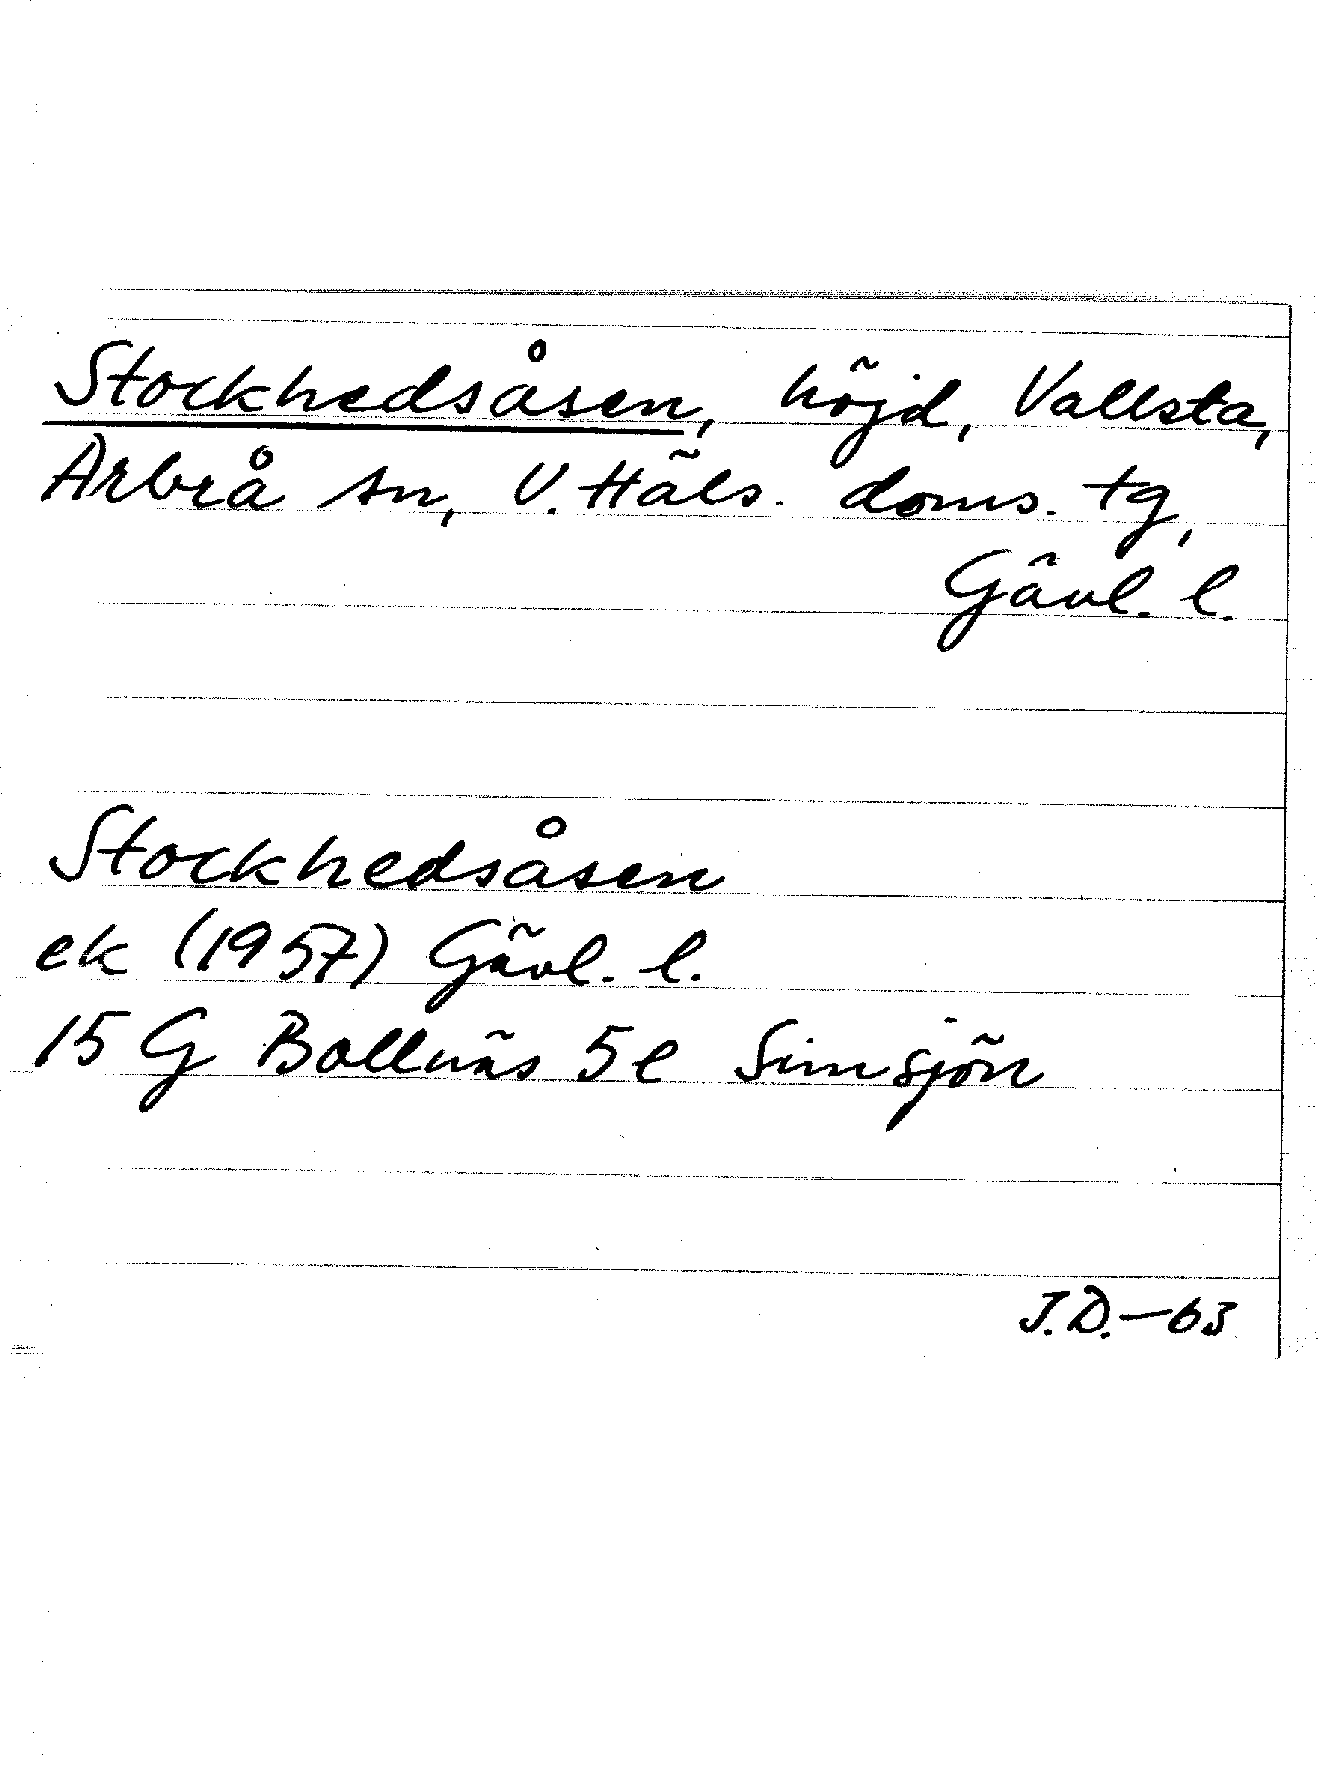 Stockhedsåsen, höjd, Vallsta,
Arbrå sn, V. Häls. doms. tg,
Gävl. l.
Stockhedsåsen
ek (1957) Gävl. l.
15 G Bollnäs 5e Simsjön
J.D. - 63